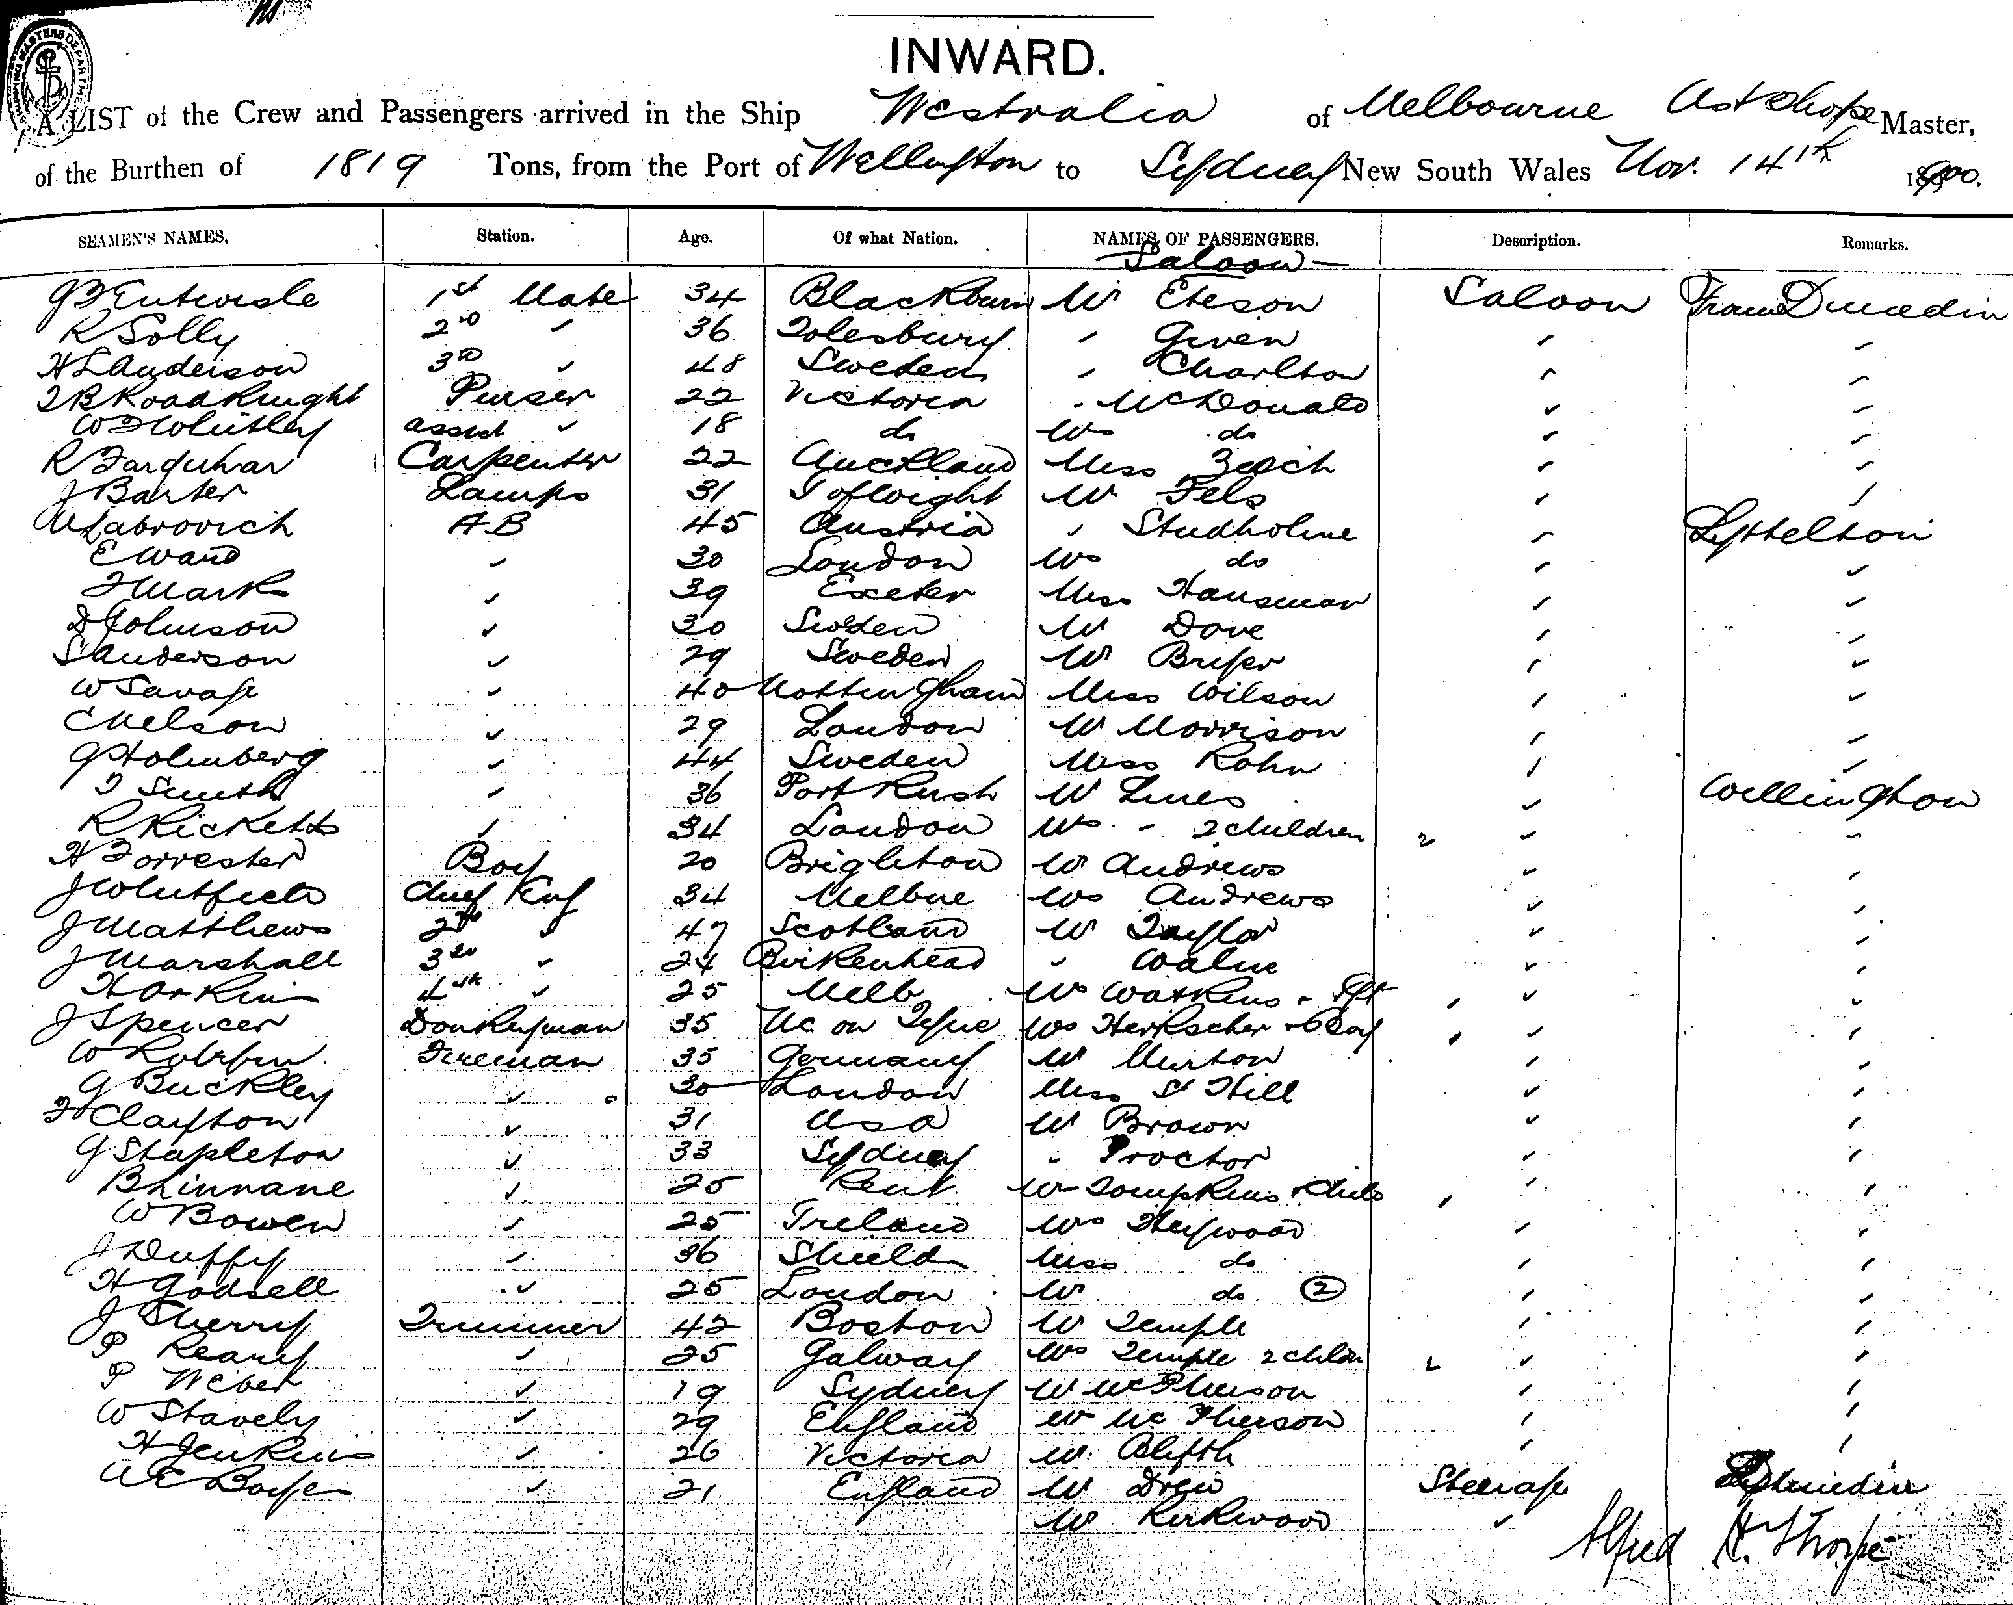 INWARD.
A LIST of the Crew and Passengers arrived in the Ship Westralia of Melbourne A H Thorpe Master,
of the Burthen of 1819 Tons, from the Port of Wellington to Sydney New South Wales Nov. 14th 1900.
SEAMEN'S NAMES. Station. Age. Of what Nation. NAMES OF PASSENGERS. Description. Remarks.
Saloon
Entwisle 1st Mate 34 Blackburn Mr Eteson Saloon From Dunedin
R Solly 2nd " 36 Tolesbury " Given " "
H S Anderson 3rd " 48 Sweden " Charlton " "
T B Roadknight Purser 22 Victoria " McDonald " "
W Whitley assist " 18 do Mrs do " "
R Farquhar Carpenter 22 Auckland Miss " "
J Barter Lamps 31 I of Wight Mr Fels " "
Labrovich AB 45 Austria " Studholme " Lyttelton
E Ward " 30 London Mrs do " "
F Mark " 39 Exeter Miss Hansman " "
D Johnson " 30 Sweden Mr Dove " "
S Anderson " 29 Sweden Mr " "
W Savage " 40 Nottingham Miss Wilson " "
C Nelson " 29 London Mr Morrison " "
G Holmberg " 44 Sweden Miss Rohn " "
T Smith " 36 Port Rush Mr Lines " Wellington
R Ricketts " 34 London Mrs " 2 children 2 " "
H Forrester Boy 20 Brighton Mr Andrews " "
J Whitfield Chief Eng 34 Melbne Mrs Andrews " "
J Matthews 2nd " 47 Scotland Mr Taylor " "
J Marshall 3rd " 24 Birkenhead " " "
H Orkin 4th " 25 Melb Mrs Watkins " "
J Spencer Donkeyman 35 Nc on Tyne Mrs Herkscher + Boy " " "
W Fireman 35 Germany Mr Murton " "
G Buckley " 30 London Miss St Hill " "
F Clayton " 31 USA Mr Brown " "
G Stapleton " 33 Sydney " Proctor " "
B Linnane " 25 Kent Mrs Tompkins + Child " " "
W Bowen " 25 Ireland Mrs Heywood " "
J Duffy " 36 Shields Miss do " "
H Godsell " 25 London Mr do 2 " "
J Sherry Trimmer 42 Boston Mr Temple " "
P Keary " 25 Galway Mrs Temple 2 childn 2 " "
P Weber " 19 Sydney Mr McPherson " "
W Stavely " 29 England Mr McPherson " "
H Jenkins " 26 Victoria Mr Blyth " "
A E Boyse " 21 England Mr Drew Steerage Dunedin
Mr Kirkwood "
Alfred H. Thorpe